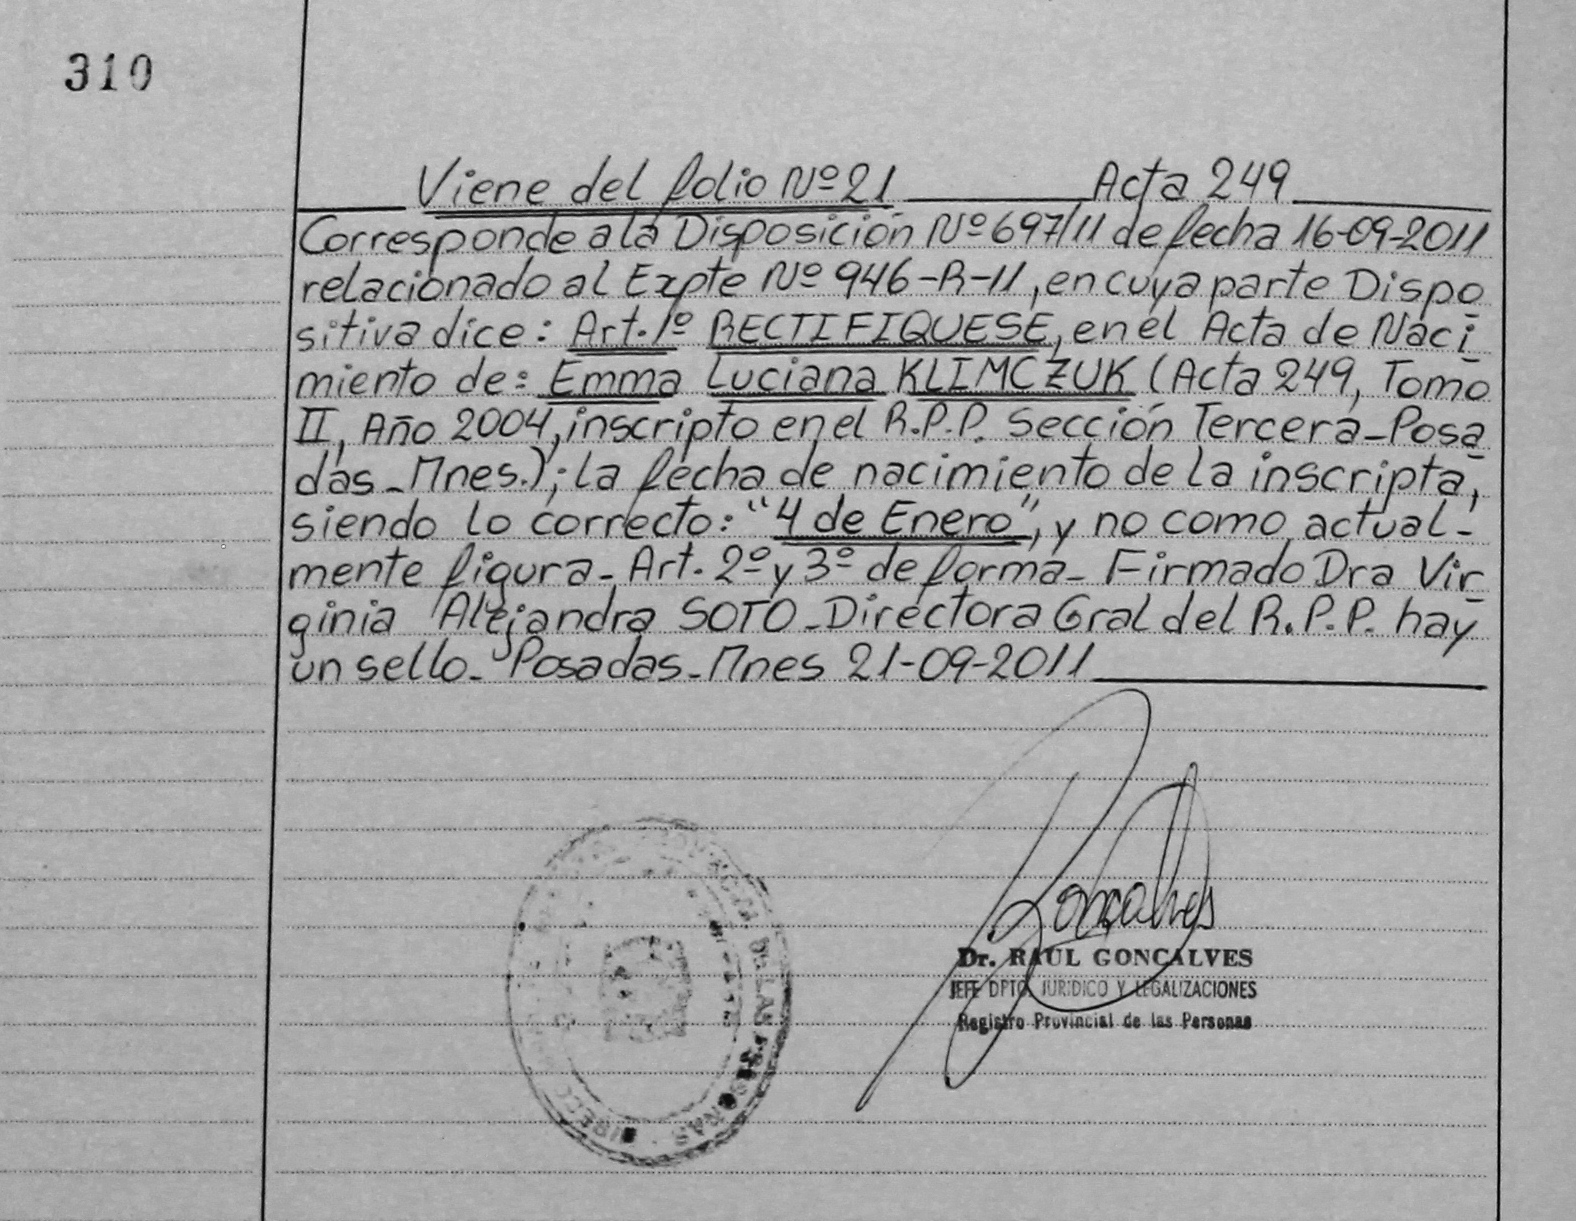 310
Viene del folio Nº 21 Acta 249
Corresponde a la Disposición Nº 697/11 de fecha 16-09-2011
relacionado al Expte Nº 946-R-11, en cuya parte Dispo
sitiva dice: Art. 1º RECTIFIQUESE, en el Acta de Naci
miento de: Emma Luciana KLIMCZUK (Acta 249, Tomo
II, Año 2004, inscripto en el R.P.P. Sección Tercera-Posa
das-Mnes.); la fecha de nacimiento de la inscripta,
siendo lo correcto: "4 de Enero", y no como actual-
mente figura- Art. 2º y 3º de forma- Firmado Dra Vir
ginia Alejandra SOTO-Directora Gral del R.P.P. hay
un sello- Posadas-Mnes 21-09-2011
Goncalves
Dr. RAUL GONCALVES
JEFE DPTO. JURIDICO Y LEGALIZACIONES
Registro Provincial de las Personas
DE LAS PERSONAS